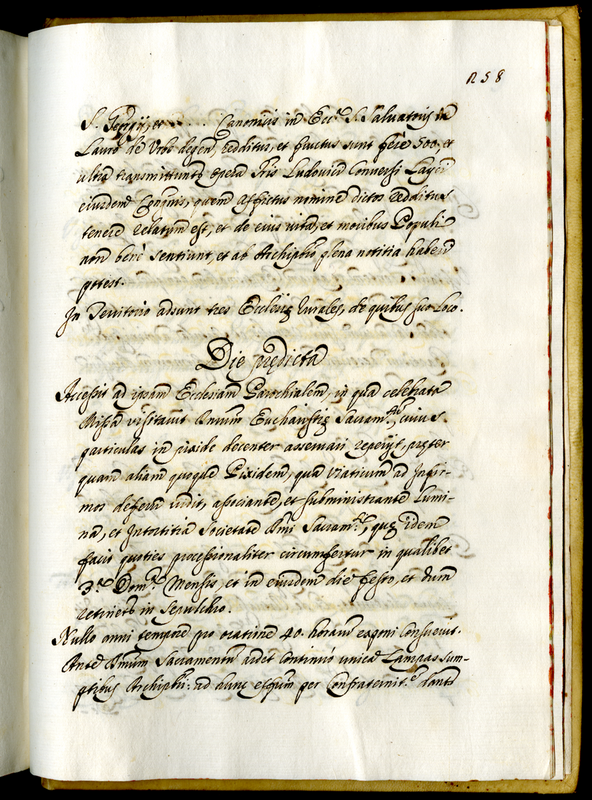 258
S. Georgij, et ..... Canonicis in Eccl.ᵃ S. Salvatoris in
Lauro de Urbe degen̄ redditus, et fructus sunt fere 500, et
ultra transmittunt opera fr̄is Ludovici Conversi Layci
eiusdem Ord̄inis, quem affictus nomine dictos redditus
tenere relatum est, et de eius vita, et moribus Populi
non bene sentiunt, et ab Archip̄bro plena notitia haberi
potest.
In Territorio adsunt tres Ecclesię rurales, de quibus suo loco.
Die prędicta
Accessit ad ipsam Ecclesiam Parochialem, in qua celebrata
Missa visitavit Divinum Eucharistię Sacram.ᵗᵘᵐ, cuius
particulas in pixide decenter asservari reperijt, pręter
quam aliam quoque Pixidem, qua viaticum ad Infir-
mos defertur vidit, associante, et subministrante lumi-
na, et Intortitia Societate S̄mi Sacram.ᵗⁱ, quę idem
facit quoties processionaliter circumfertur in qualibet
3.ᵃ Dom.ᶜᵃ Mensis, et in eiusdem die festo, et dum
retinetur in sepulchro.
Nullo anni tempore pro oratione 40. horarum exponi consuevit.
Ante Divinum Sacramentum ardet continuo unica Lampas sum-
ptibus Archip̄bri: ad hunc effectum per Confraternit.ᵉ dantur